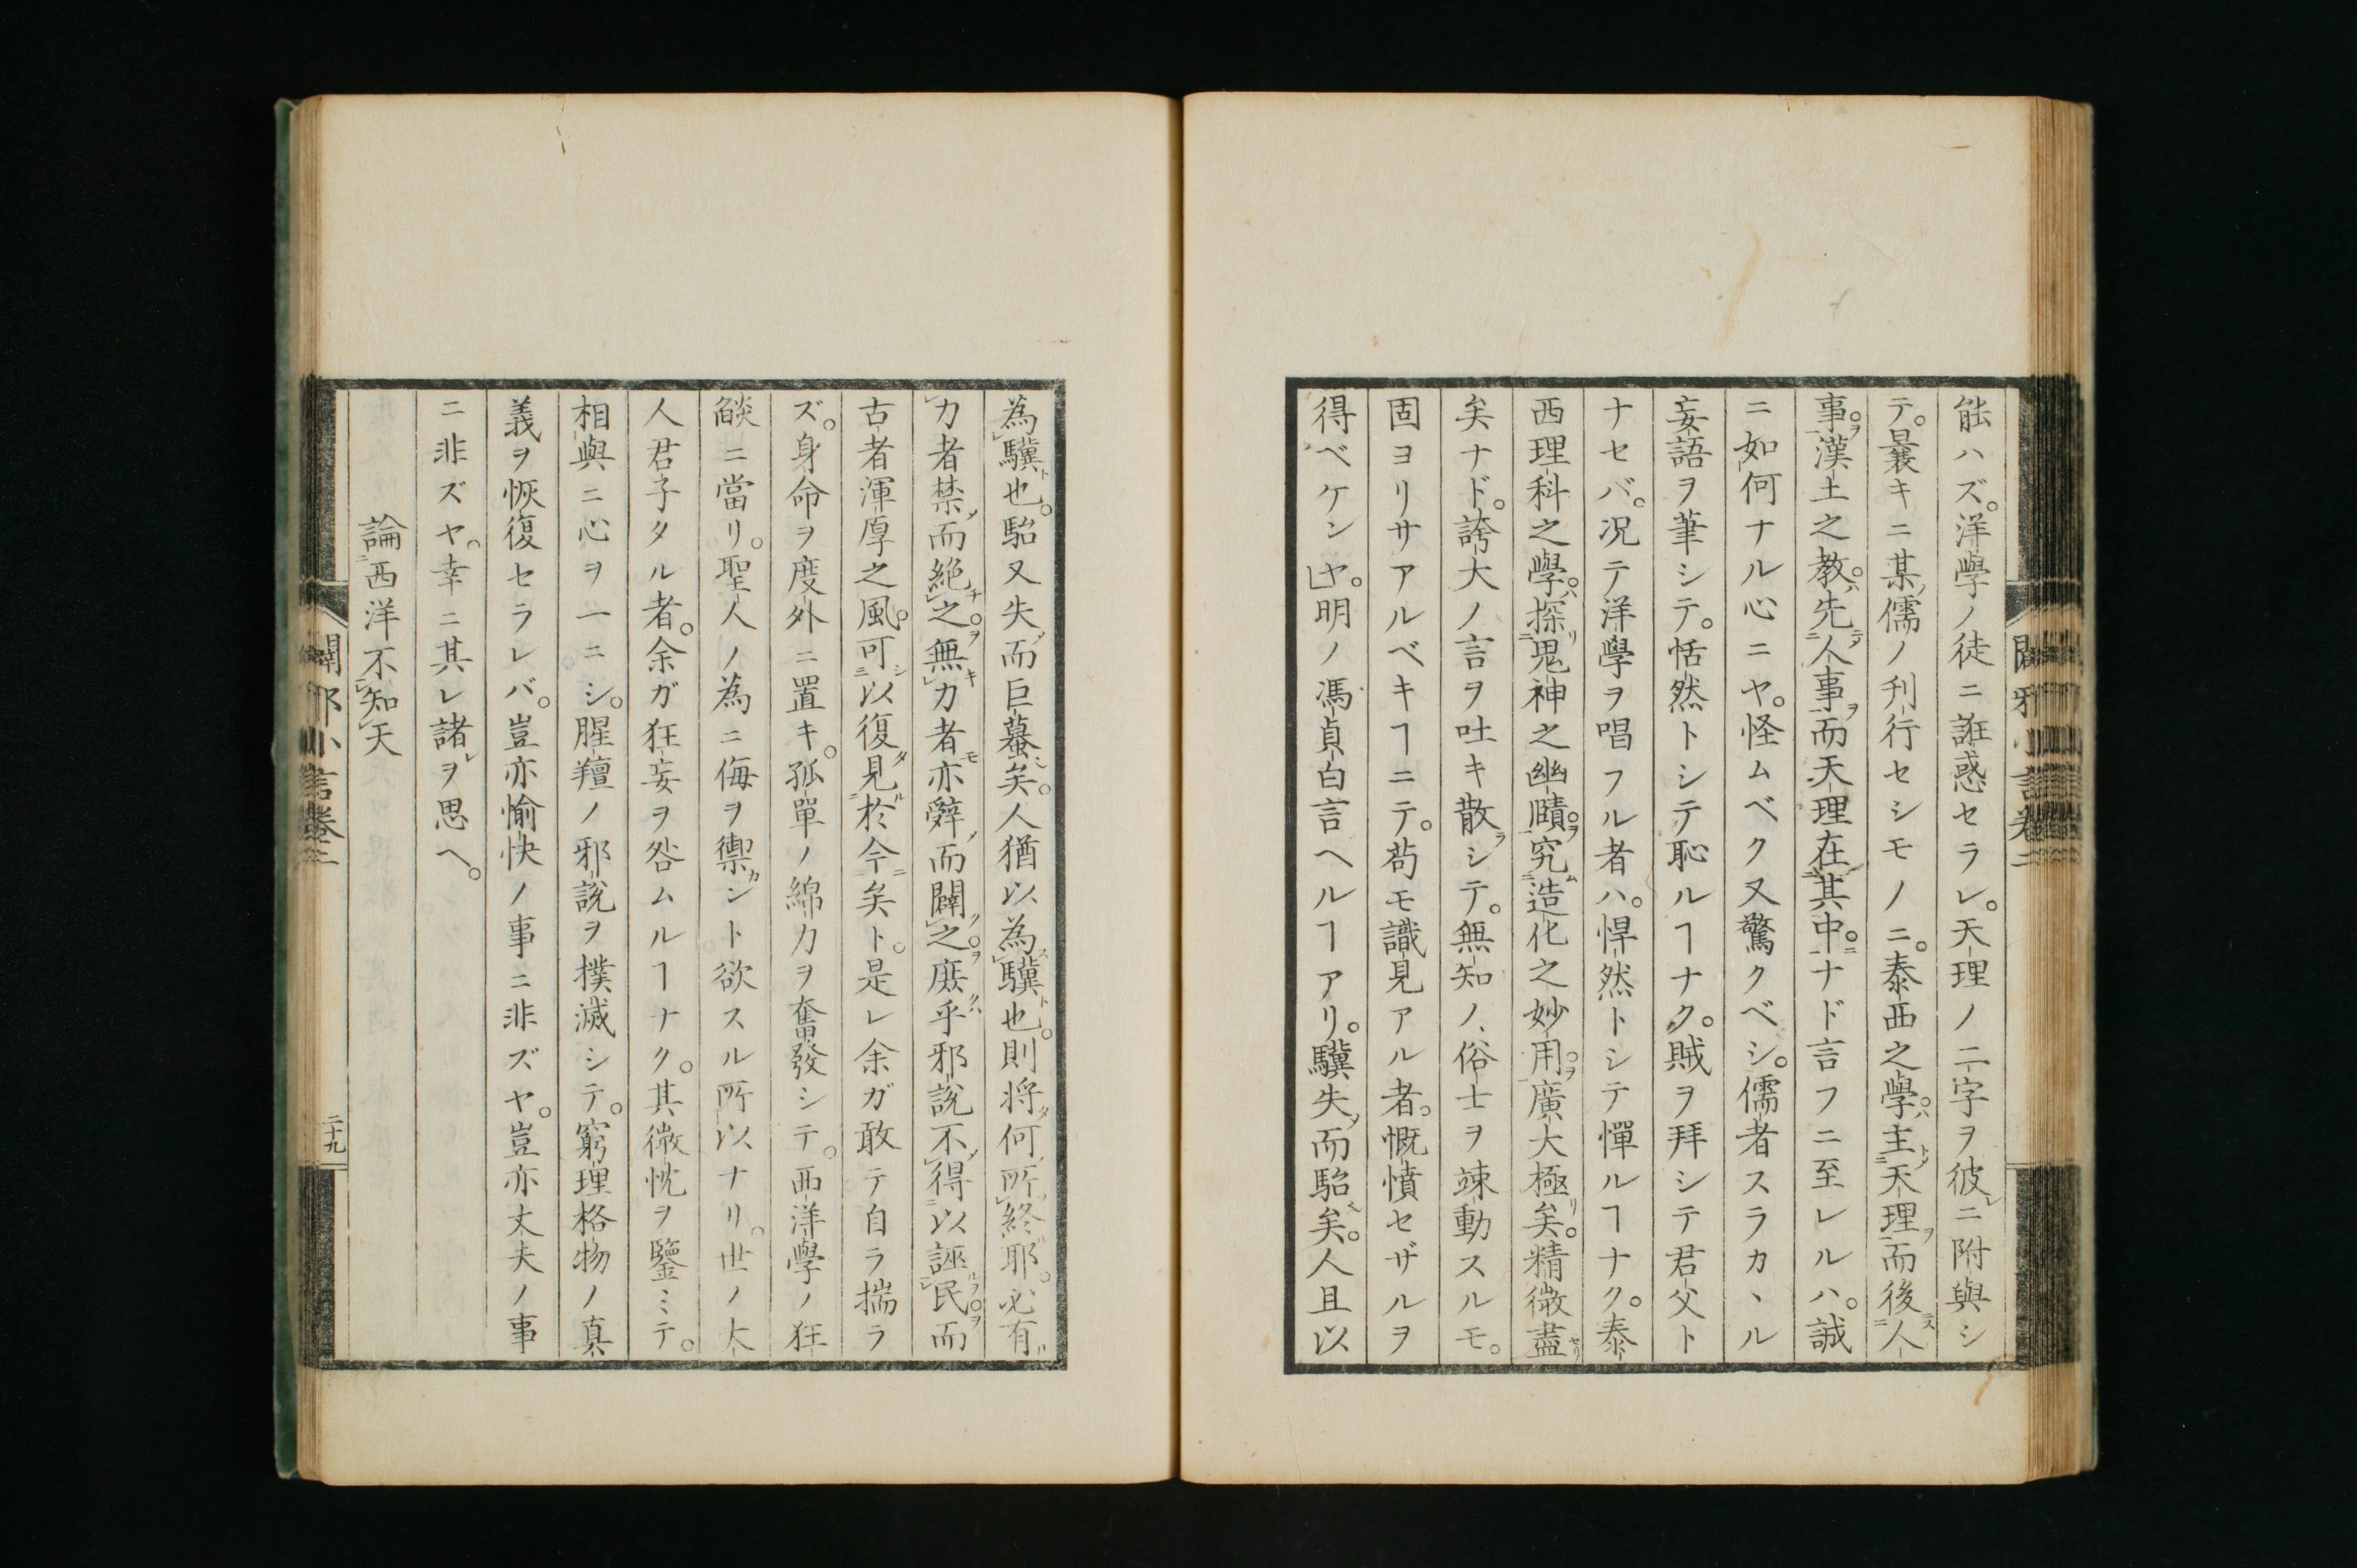 能ハズ。洋學ノ徒ニ誑惑セラレ。天理ノ二字ヲ彼レニ附與シ
テ。曩キニ某儒ノ刋行セシモノニ。泰西之學。主天理而後人
事。漢土之教。先人事而天理在其中。ナド言フニ至レルハ。誠
ニ如何ナル心ニヤ。怪ムベク又驚クベシ。儒者スラカヽル
妄語ヲ筆シテ。恬然トシテ恥ルヿナク。賊ヲ拜シテ君父ト
ナセバ。况テ洋學ヲ唱フル者ハ。悍然トシテ憚ルヿナク。泰
西理科之學。探鬼神之幽賾。究造化之妙用。廣大極矣。精微盡
矣ナド。誇大ノ言ヲ吐キ散ラシテ。無知ノ俗士ヲ竦動スルモ。
固ヨリサアルベキヿニテ。苟モ識見アル者。慨憤セザルヲ
得ベケンヤ。」明ノ馮貞白言ヘルヿアリ。驥失而駘矣。人且以
為驥也。駘又失而巨蟇矣。人猶以為驥也。則将何所終耶。必有
力者禁而絶之。無力者亦辭而闢之。庶乎邪説不得以誣民。而
古者渾厚之風。可以復見於今矣ト。是レ余ガ敢テ自ラ揣ラ
ズ。身命ヲ度外ニ置キ。孤單ノ綿力ヲ奮發シテ。西洋學ノ狂
燄ニ當リ。聖人ノ為ニ侮ヲ禦カント欲スル所以ナリ。世ノ大
人君子タル者。余ガ狂妄ヲ咎ムルヿナク。其微忱ヲ鑒ミテ。
相與ニ心ヲ一ニシ。腥羶ノ邪説ヲ撲滅シテ。窮理格物ノ真
義ヲ恢復セラレバ。豈亦愉快ノ事ニ非ズヤ。豈亦丈夫ノ事
ニ非ズヤ。幸ニ其レ諸レヲ思ヘ。
論西洋不知天
闢邪小言卷二
二十九